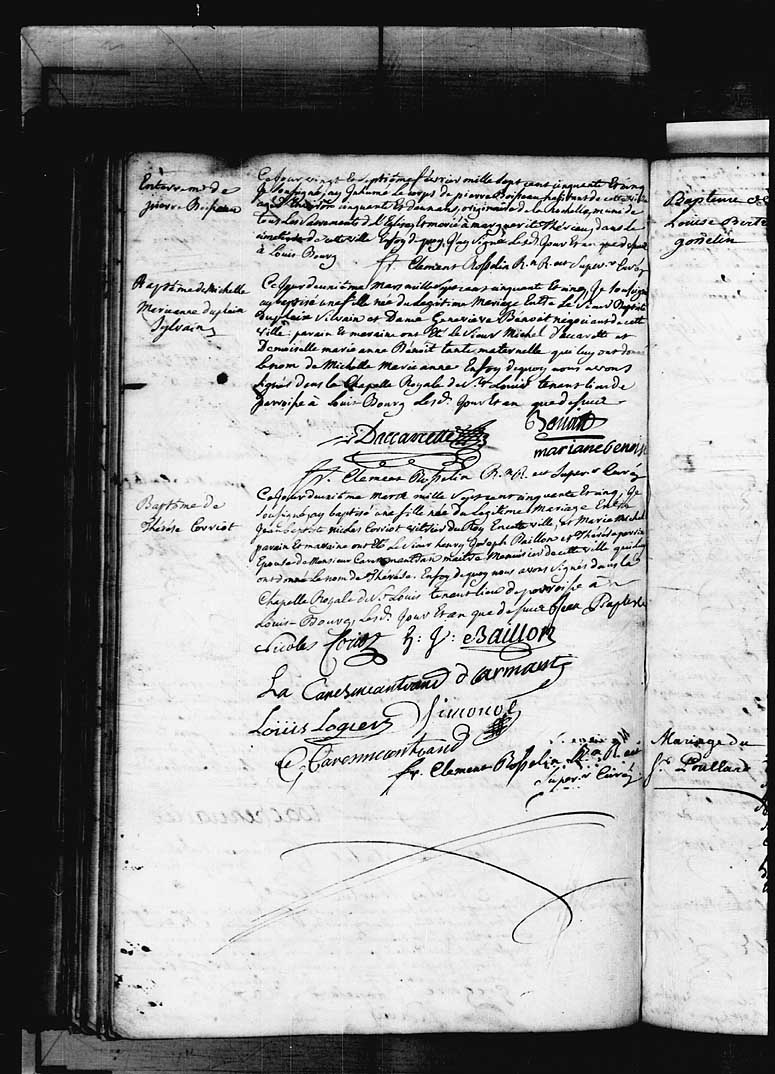 Enterrem. de
pierre Boisseau
Ce Jour vingt et septième février mille sept cent cinquante et cinq
Je soussigné, ay Inhumé le corps de pierre Boisseau, habitant de cette ville
agé cinquante et deux ans, originaire de la Rochelle, muni de
tous les Sacrements de l'Eglise, et marié a marguerite Theriau, dans le
cimetière de cette ville En foy de quoy J'ay Signé Les d. Jour et an que dessus
à Louis Bourg
fr. Clement Rosselin R. n R. est Super.r Curéz
Baptême de Michelle
Marianne duplein
Sylvain
Ce Jour deuxième Mars mille sept cent cinquante et cinq, Je soussigné
ay baptisé une fille née du Legitime Mariage Entre Le Sieur Baptiste
Duplein Silvain et Dame Genevieve Benoit négociant de cette
ville: parain et maraine ont été le Sieur Michel d'accarette et
Demoiselle marie anne Bénoit tante maternelle qui luy ont donné
Le nom de Michelle Marie anne En foy de quoy nous avons
signés dans la Chapelle Royale de St Louis tenant lieu de
parroisse à Louis Bourg Les d. Jour et an que dessus
Daccarrette
Benoit
mariane benoist
fr. Clement Rosselin R. n R. est Super.r Curéz
Baptême de
Thérèse Corriot
Ce Jour deuxième Mars mille sept cent cinquante et cinq, Je
soussigné, ay baptisé une fille née Du Legitime Mariage Entre
Jean baptiste nicolas Corriot du Roy En cette ville, et Marie Michel
parain et maraine ont été Le Sieur henry Joseph Baillon et Thérèse
Epouse de Monsieur maître Menuisier de cette ville qui luy
ont donné Le nom de Thérèse. En foy de quoy nous avons Signés dans la
Chapelle Royale de St Louis tenant lieu de parroisse à
Louis Bourg Les d. Jour et an que dessus Jean Baptiste
Nicolas Coriot h: J: Baillon
La d'armant
Louis Logier Simonot
fr. Clement Rosselin R. n R. est
Super.r Curéz
Bapteme de
Louise Berte
gosselin
Mariage du
Sr. Poullard